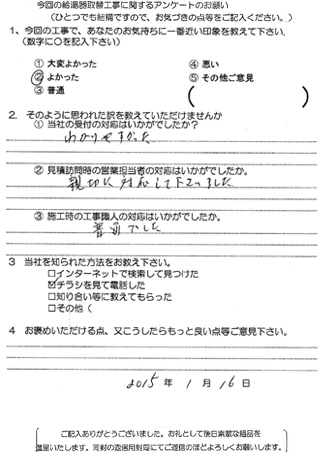 今回の給湯器取替工事に関するアンケートのお願い
(ひとつでも結構ですので、お気づきの点等をご記入ください。)
1、今回の工事で、あなたのお気持ちに一番近い印象を教えて下さい。
(数字に○を記入下さい)
① 大変よかった
④ 悪い
② よかった
⑤ その他ご意見
③ 普通
( )
2. そのように思われた訳を教えていただけませんか
① 当社の受付の対応はいかがでしたか?
わかりやすかった
② 見積訪問時の営業担当者の対応はいかがでしたか。
親切に対応して下さいました
③ 施工時の工事職人の対応はいかがでしたか。
普通でした
3 当社を知られた方法をお教え下さい。
□インターネットで検索して見つけた
☑チラシを見て電話した
□知り合い等に教えてもらった
□その他(
4 お褒めいただける点、又こうしたらもっと良い点等ご意見下さい。
2015 年 1 月 16 日
ご記入ありがとうございました。お礼として後日素敵な粗品を
進呈いたします。同封の返信用封筒にてご返信のほどよろしくお願いします。